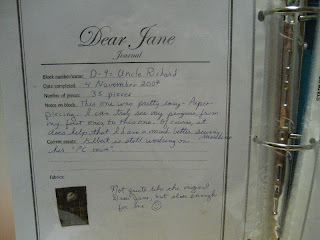 Dear Jane
Journal
Block number/name: D-9: Uncle Richard
Date completed: 4 November 2004
Number of pieces: 35 pieces
Notes on block: This one was pretty easy - Paper
piecing. I can truly see my progress from
my first ones to this one. Of course, it
does help that I have a much better sewing
machine
Current events: Gilbert is still working on
her "PC move"
Fabrics:
Not quite like the original
Dear Jane, but close enough
for me ☺